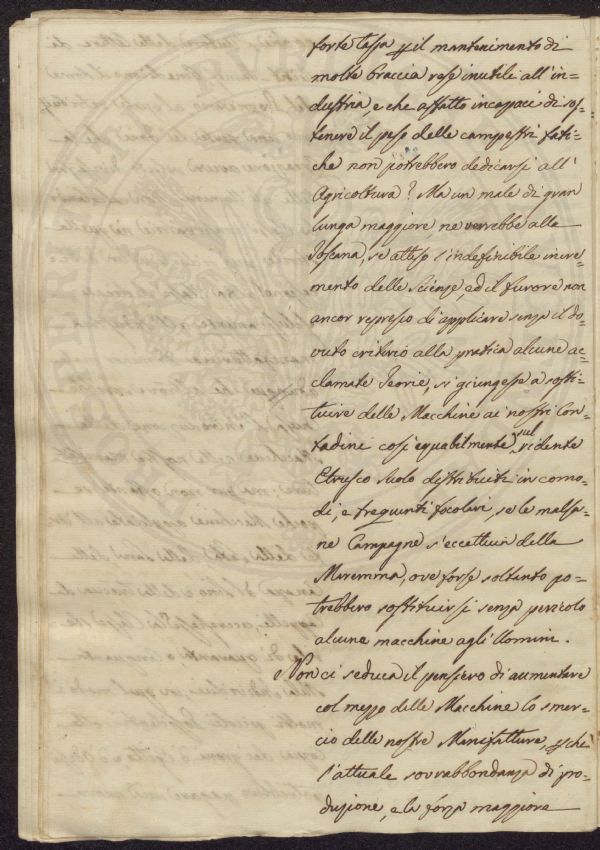 forte tassa p il mantenimento di
molte braccia rese inutili all'in-
dustria, e che affatto incapaci di sos-
tenere il peso delle campestri fati-
che non potrebbero dedicarsi all'
Agricoltura? Ma un male di gran
lunga maggiore ne verrebbe alla
Toscana, se atteso l'indefinibile incre-
mento delle Scienze, ed il furore non
ancor represso di applicare senza il do-
vuto criterio alla pratica alcune ac-
clamate Teorie, si giungesse a sosti-
tuire delle Macchine ai nostri Con-
tadini così equabilmente sul ridente
Etrusco Suolo distribuiti in como-
di, e frequenti focolari, se le malsa-
ne Campagne s'eccettuin della
Maremma, ove forse soltanto po-
trebbero sostituirsi senza pericolo
alcune macchine agli Uomini.
Non ci seduca il pensiero di aumentare
col mezzo delle Macchine lo smer-
cio delle nostre Manifatture, pchè
l'attuale sovrabbondanza di pro-
duzione, e la forza maggiore